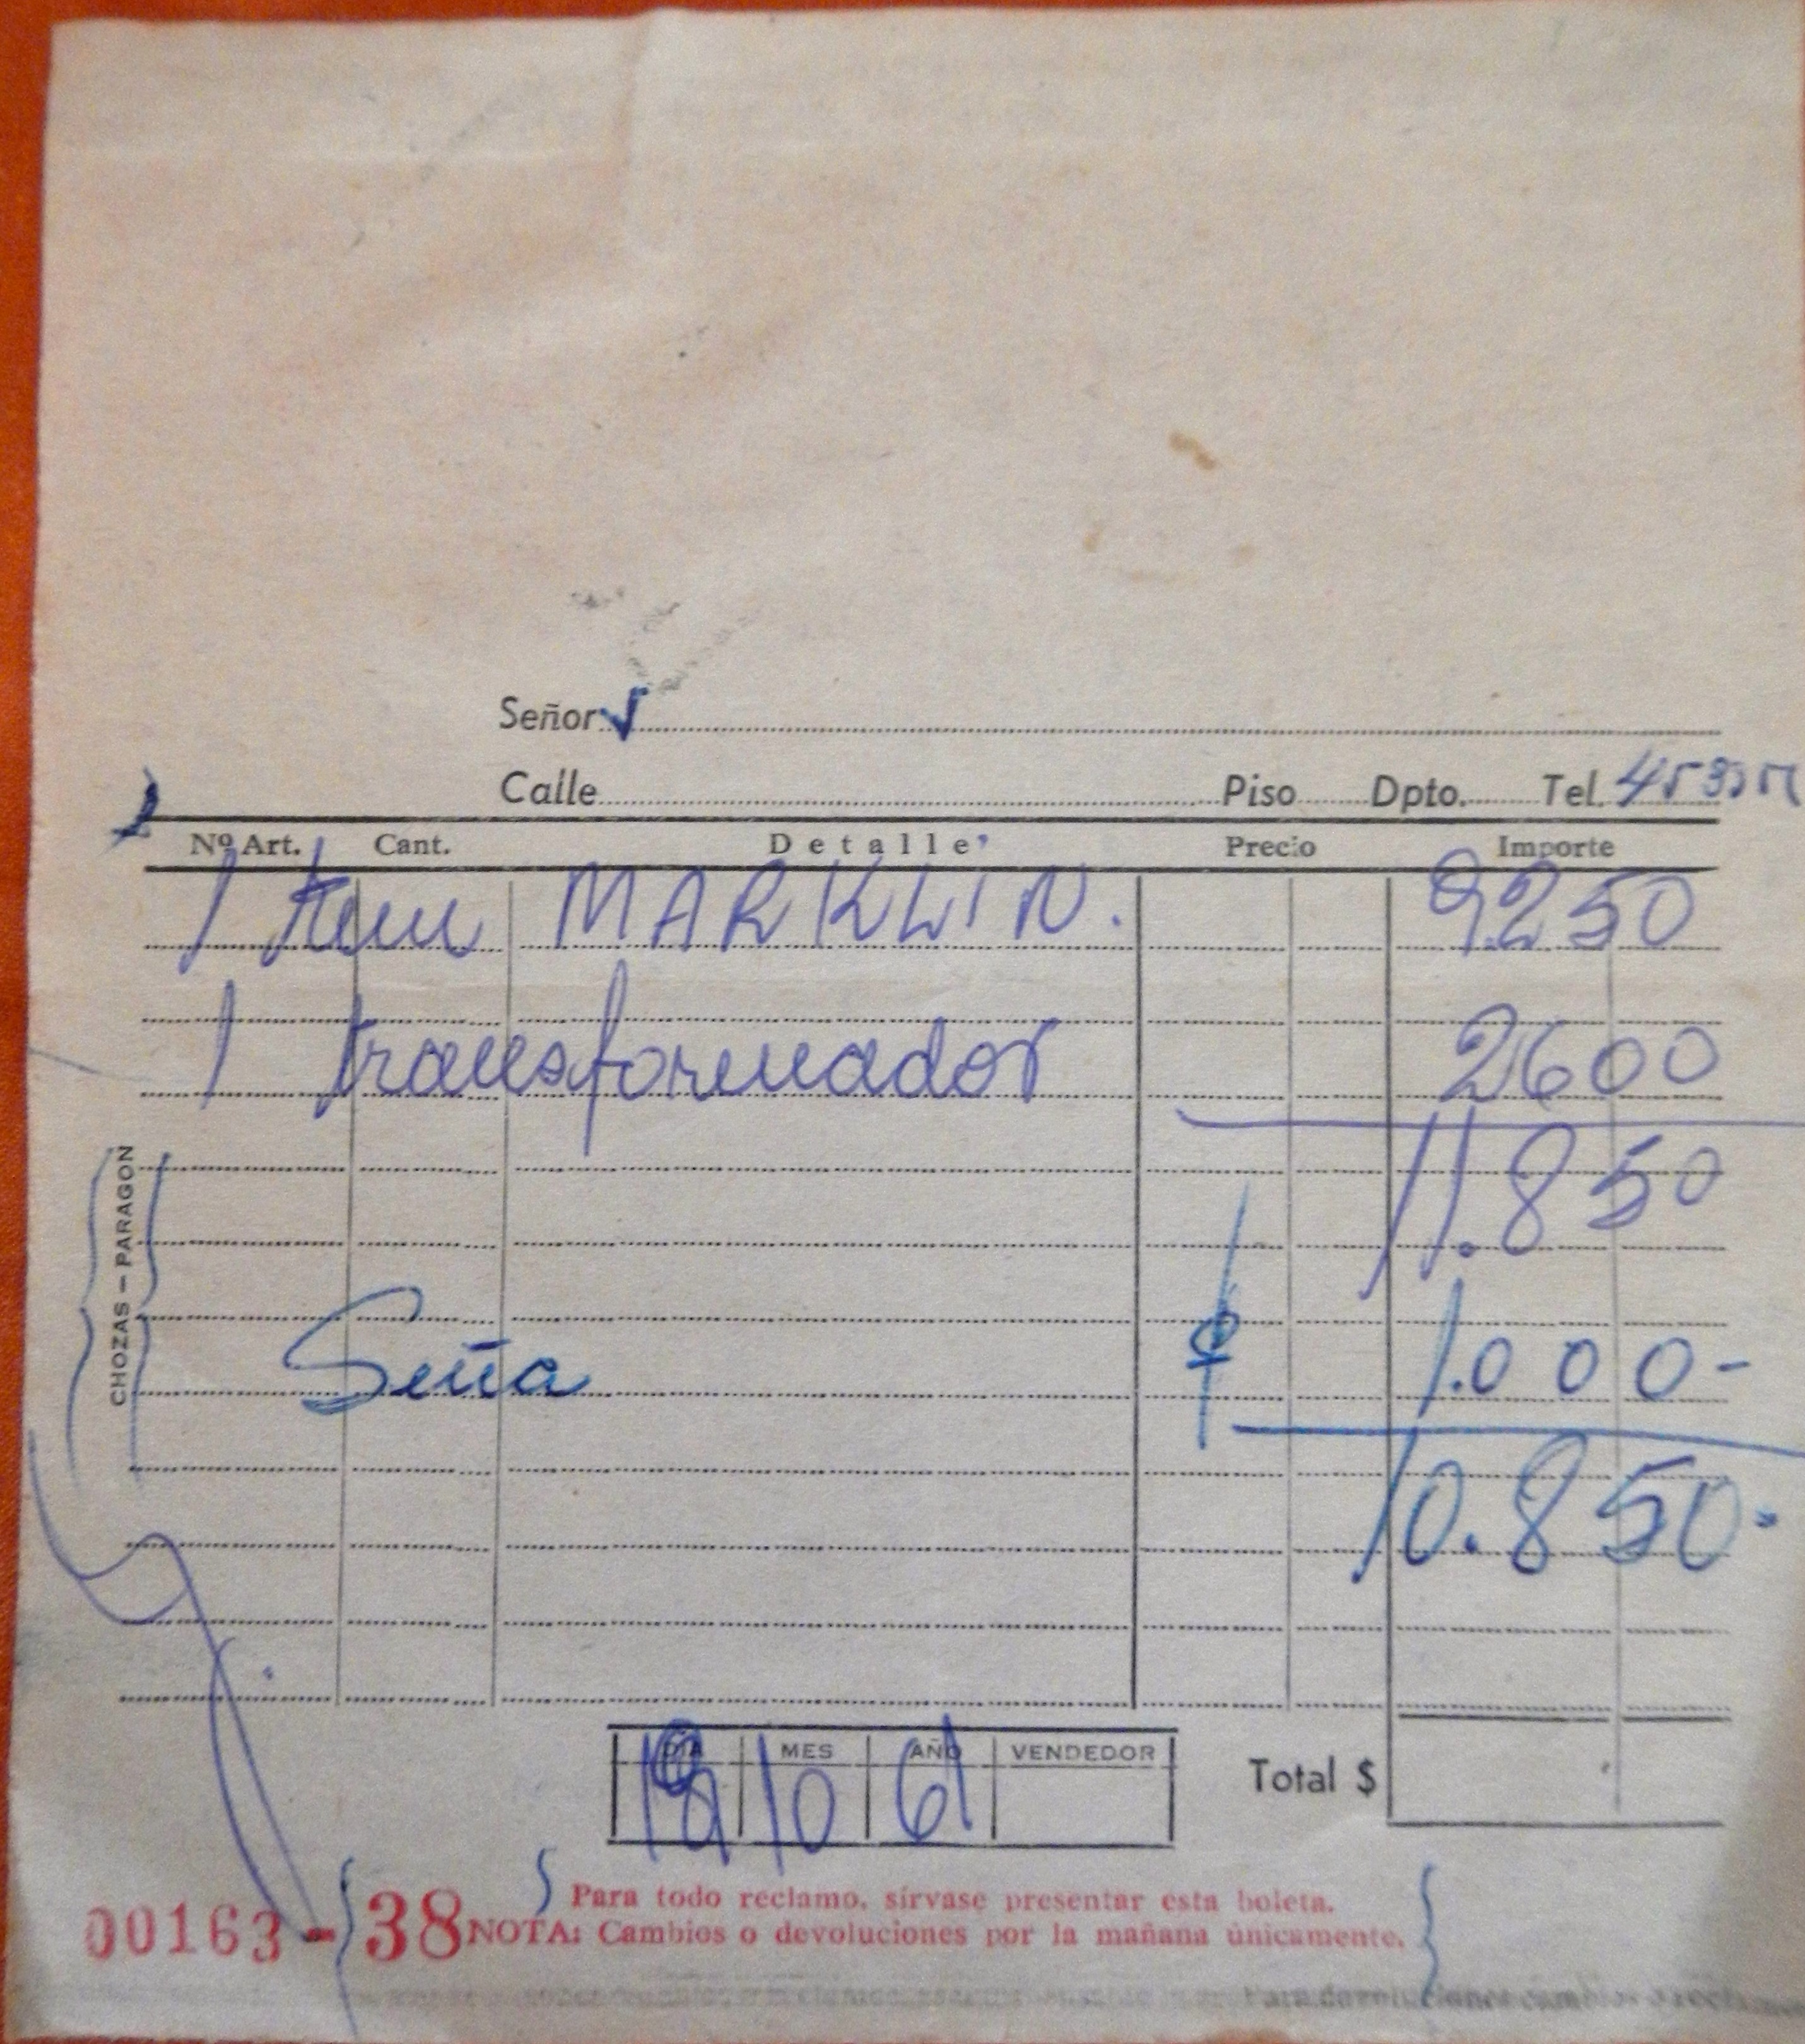 Señor
Calle Piso Dpto. Tel.
Nº Art. Cant. Detalle Precio Importe
1 tren MARKLIN. 9.250
1 transformador 2600
11.850
Seña $ 1.000-
10.850.
CHOZAS - PARAGON
DIA MES AÑO VENDEDOR
10 61
Total $
00163 - 38
Para todo reclamo, sírvase presentar esta boleta.
NOTA: Cambios o devoluciones por la mañana únicamente.